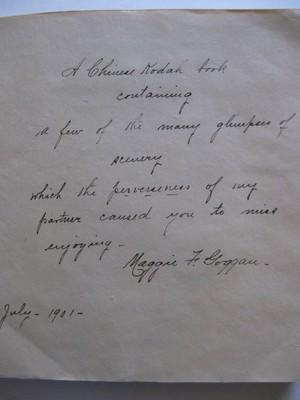 A Chinese Kodak book
containing
a few of the many glimpses of
scenery
which the perverseness of my
partner caused you to miss
enjoying -
Maggie F.
July - 1901 -